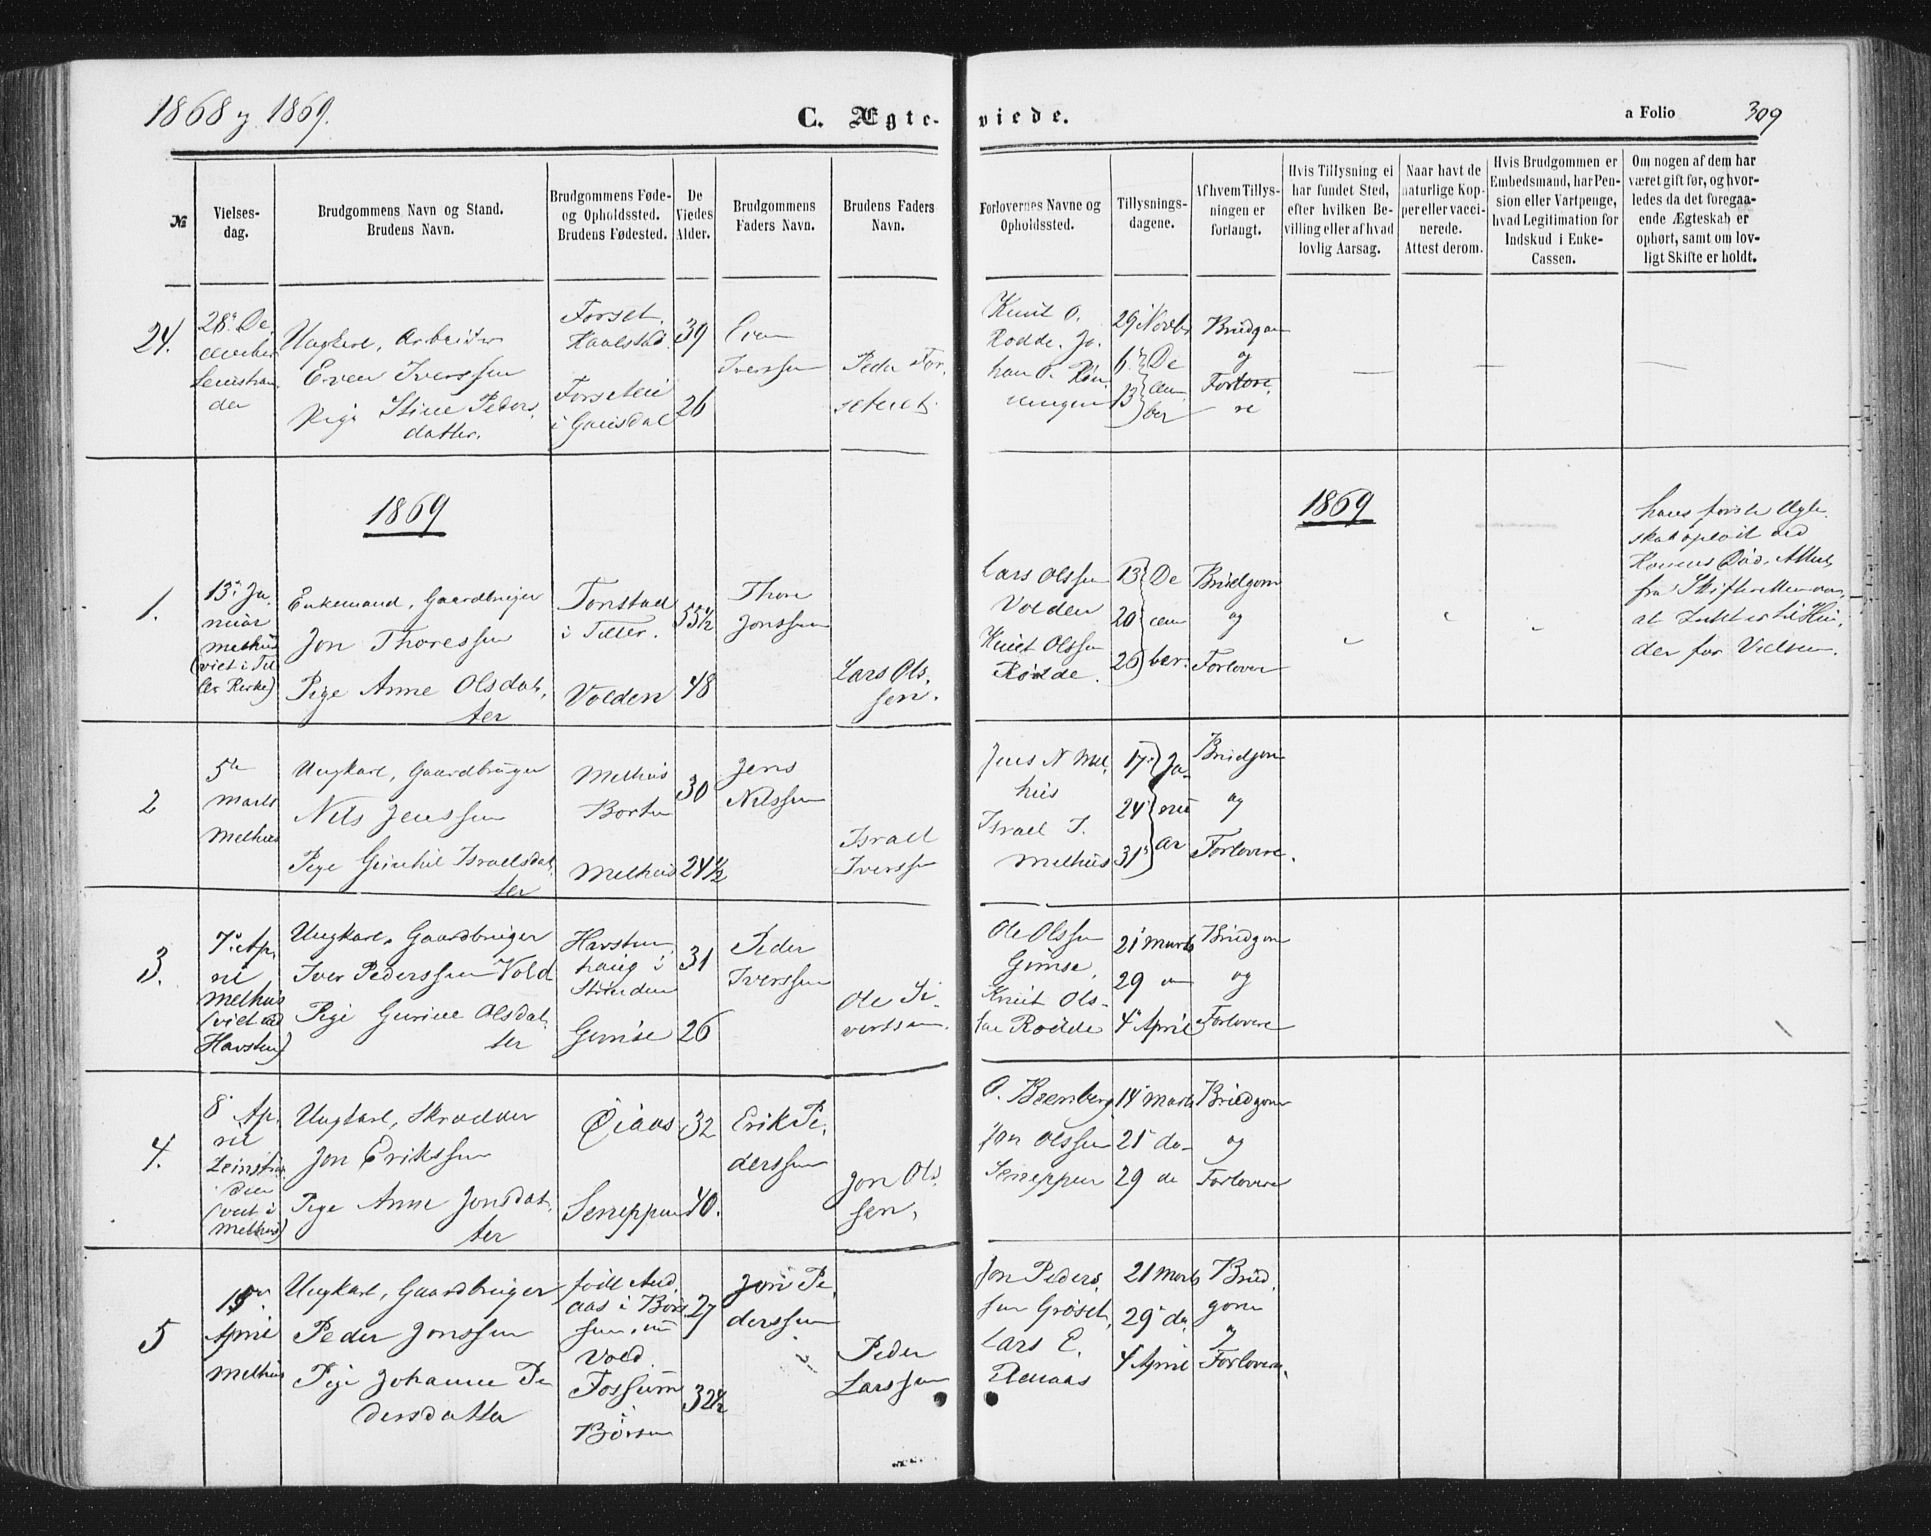 1868 og 1869.
C. Ægteviede.
a Folio
309
№
Vielses-
dag.
Brudgommens Navn og Stand.
Brudens Navn.
Brudgommens Føde-
og Opholdssted.
Brudens Fødested.
De
Viedes
Alder.
Brudgommens
Faders Navn.
Brudens Faders
Navn.
Forlovernes Navne og
Opholdssted.
Tillysnings-
dagene.
Af hvem Tillys-
ningen er
forlangt.
Hvis Tillysning ei
har fundet Sted,
efter hvilken Be-
villing eller af hvad
lovlig Aarsag.
Naar havt de
naturlige Kop-
per eller vacci-
nerede.
Attest derom.
Hvis Brudgommen er
Embedsmand, har Pen-
sion eller Vartpenge,
hvad Legitimation for
Indskud i Enke-
Cassen.
Om nogen af dem har
været gift før, og hvor-
ledes da det foregaa-
ende Ægteskab er
ophørt, samt om lov-
ligt Skifte er holdt.
24.
28. De
cember
Leinstran
den
Ungkarl, Arbeider
Even Iverssen
Pige Stine Peders
datter.
Forset,
Kaalstad
Forset
i Guisdal
39
26
Even
Iverssen
Peder For
seteiet.
Knut O.
Rødde. Jo.
han O. Røn
ningen
29 Novbr
6. De
13 cem
ber
Brudgom
og
Forlove
re
1869
1869
1.
13. Ja
nuar
Melhus
(viet i Til
ler Kirke)
Enkemand, Gaardbruger
Jon Thoressen
Pige Anne Olsdat,
ter
Tonstad
i Tiller.
Volden
55½
48
Thore
Jonssen
Lars Ols,
sen.
Lars Olssen
Volden
Knut Olssen
Rødde.
13 De
20 cem
26 ber.
Brudgom
og
Forlover
hans første Ægte
skab opløst ved
Konens Død. Attest
fra Skifteretten om,
at Intet er til Hin,
der for Vielsen.
2
5te
Marts
Melhus
Ungkarl, Gaardbruger
Nils Jenssen
Pige Gunhil Israelsdat,
ter
Melhus
Borten
Melhus
30
24½
Jens
Nilssen
Israel
Iverssen
Jens N Mel,
hus
Israel I.
Melhus
17. Ja-
24 nu
31 ar
Brudgom
og
Forlovere.
3.
7. Ap,
ril
Melhus
(viet ved
Havsten)
Ungkarl, Gaardbruger
Iver Pederssen Vold
Pige Gurine Olsdat,
ter
Havsten
haug i
Strinden
Gimse
31
26
Peder
Iverssen
Ole Si-
vertsen.
Ole Olssen
Gimse,
Knut Ols-
sen Rødde
21 Marts
29
4 April
Brudgom
og
Forlovere
4.
8 Ap,
ril
Leinstran
den
(viet i
Melhus)
Ungkarl, Skrædder
Jon Erikssen
Pige Anne Jonsdat,
ter
Øiaas
Seneppen
32
40.
Erik Pe,
derssen
Jon Ols,
sen,
O. Bremberg
Jon Olssen
Seneppen
14 Marts
21 do
29 do
Brudgom
og
Forlovere
5
April
Melhus
Ungkarl, Gaardbruger
Peder Jonssen
Pige Johanne Pe
dersdatter
født And
aas i Børs
sen, nu
Vold.
Fossum
i
Børsen
27
32½
Jon Pe,
derssen
Peder
Larssen
Jon Peders,
sen Grøset,
Lars E.
21 Marts
29 do
4 April
Brud,
gom
og
Forlovere,